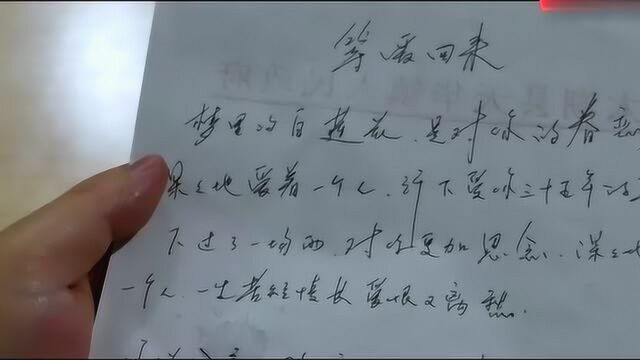 等爱回来
梦里的白莲花,是对你的眷恋
深深地爱着一个人,许下爱你三十五年的
下过了一场雨,对你更加思念,深深地
一个人,一生苦经情长爱恨又离愁.